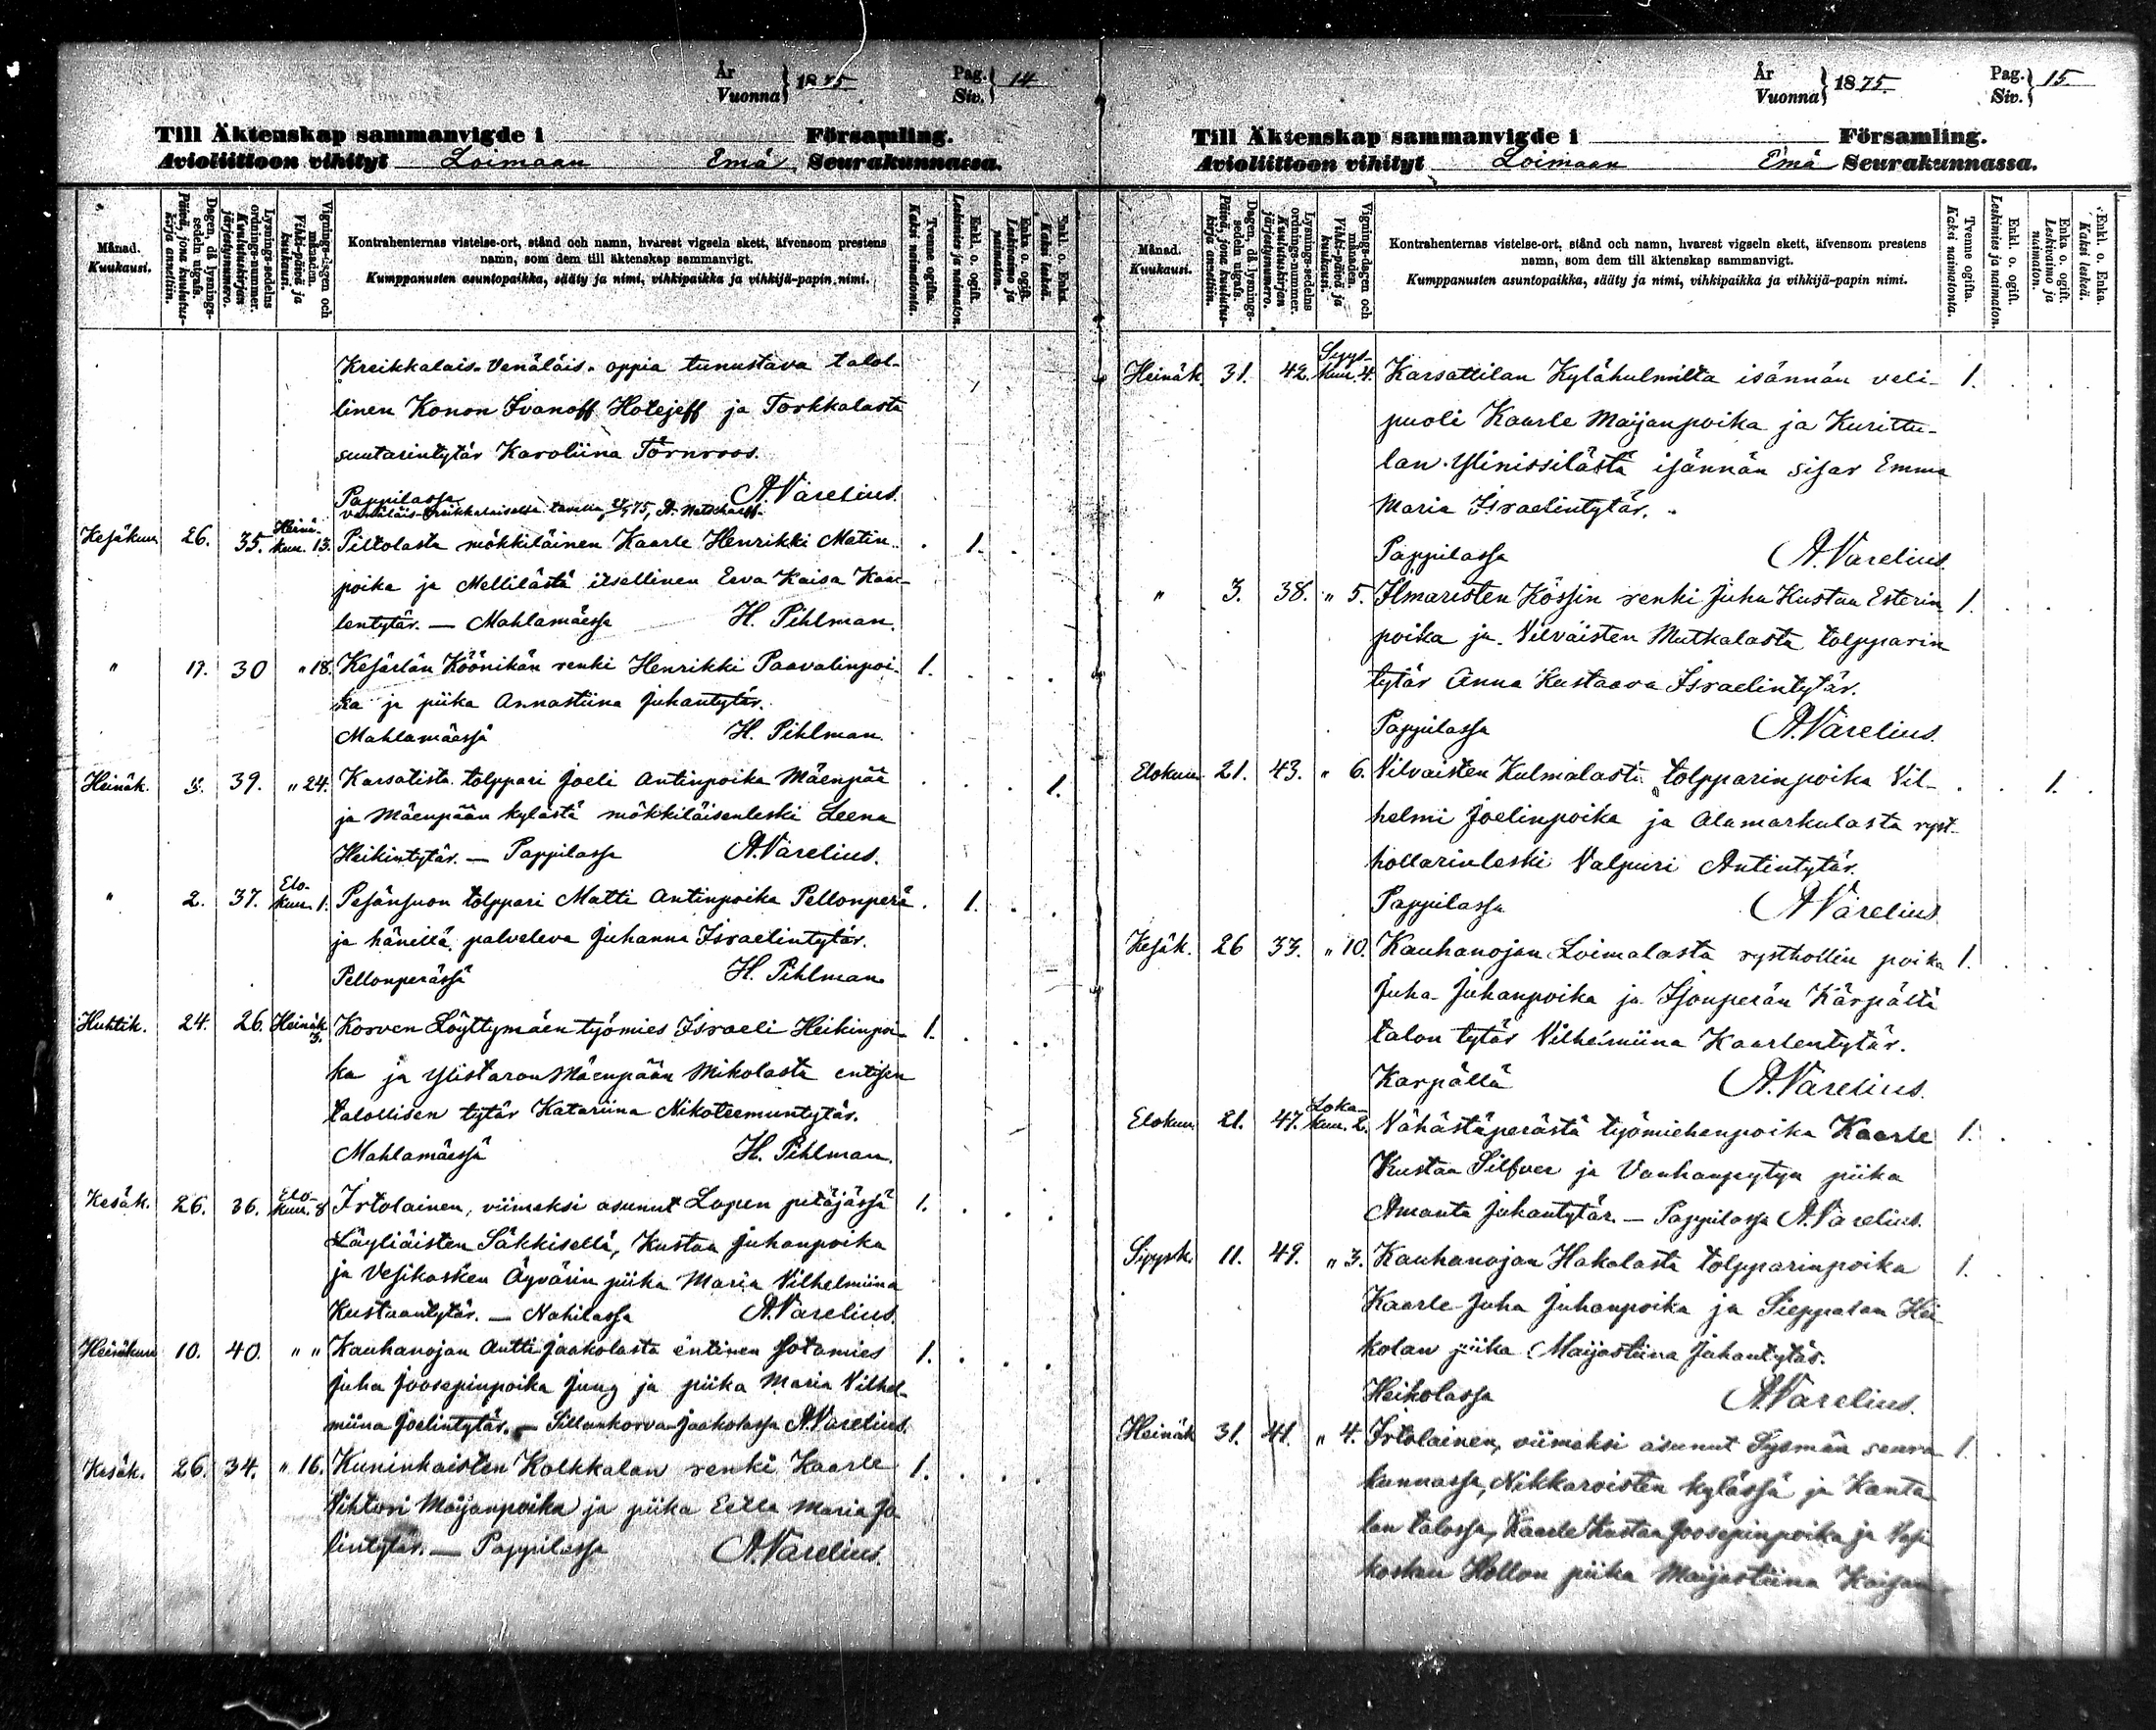 År
Vuonna } 1875
Pag.
Siv. } 14
Till Äktenskap sammanvigde i Församling.
Avioliittoon vihityt Loimaan Emä Seurakunnassa.
Månad.
Kuukausi.
Dagen, då lysnings-sedeln utgafs.
Päivä, jona kuulutus-kirja annettiin.
Lysnings-sedelns ordnings-nummer.
Kuulutuskirjan järjestysnumero.
Vignings-dagen och månaden.
Vihki-päivä ja kuukausi.
Kontrahenternas vistelse-ort, stånd och namn, hvarest vigseln skett, äfvensom prestens
namn, som dem till äktenskap sammanvigt.
Kumppanusten asuntopaikka, sääty ja nimi, vihkipaikka ja vihkijä-papin nimi.
Tvenne ogifta.
Kaksi naimatonta.
Enkl. o. ogift.
Leskimies ja naimaton.
Enka o. ogift.
Leskivaimo ja naimaton.
Enkl. o. Enka.
Kaksi leskeä.
Kreikkalais-Venäläis- oppia tunustava talol-
linen Konon Ivanoff Hotejeff ja Torkkalasta
suutarintytär Karoliina Törnroos.
Pappilassa A. Varelius.
Kesäkuu 26. 35. Heinä-kuu. 13. Piltolasta mökkiläinen Kaarle Henrikki Matin- 1.
poika ja Mellilästä itsellinen Eeva Kaisa Kaar-
lentytär. — Mahlamäessä H. Pihlman.
" 19. 30 " 18. Kesärlän Köönikän renki Henrikki Paavalinpoi- 1.
ka ja piika Annastiina Juhantytär.
Mahlamäessä H. Pihlman.
Heinäk. 3. 39. " 24. Karsatista tolppari Joeli Antinpoika Mäenpää 1.
ja Mäenpään kylästä mökkiläisenleski Leena
Heikintytär. — Pappilassa A. Varelius.
" 2. 37. Elo-kuu. 1. Pesänsuon tolppari Matti Antinpoika Pellonperä 1.
ja hänellä palveleva Juhanna Israelintytär.
Pellonperässä H. Pihlman
Huhtik. 24. 26. Heinäk. 3. Korven Löyttymäen työmies Israeli Heikinpoi- 1.
ka ja Ylistaron Mäenpään Mikolasta entisen
talollisen tytär Katariina Nikoteemuntytär.
Mahlamäessä H. Pihlman.
Kesäk. 26. 36. Elo-kuu. 8 Irtolainen, viimeksi asunut Lopen pitäjässä 1.
Läyliäisten Säkkisellä, Kustaa Juhanpoika
ja Vesikosken Äyvärin piika Maria Vilhelmiina
Kustaantytär. — Nahilassa A. Varelius.
Heinäkuu 10. 40. " " Kauhanojan Antti-Jaakolasta entinen sotamies 1.
Juha Joosepinpoika Jung ja piika Maria Vilhel-
miina Joelintytär. — Sillankorva-Jaakolassa A. Varelius.
Kesäk. 26. 34. " 16. Kuninkaisten Kolkkalan renki Kaarle 1.
Vihtori Maijanpoika ja piika Eella Maria Jo
lintytär. — Pappilassa A. Varelius.
År
Vuonna } 1875.
Pag.
Siv. } 15.
Till Äktenskap sammanvigde i Församling.
Avioliittoon vihityt Loimaan Emä Seurakunnassa.
Månad.
Kuukausi.
Dagen, då lysnings-sedeln utgafs.
Päivä, jona kuulutus-kirja annettiin.
Lysnings-sedelns ordnings-nummer.
Kuulutuskirjan järjestysnumero.
Vignings-dagen och månaden.
Vihki-päivä ja kuukausi.
Kontrahenternas vistelse-ort, stånd och namn, hvarest vigseln skett, äfvensom prestens
namn, som dem till äktenskap sammanvigt.
Kumppanusten asuntopaikka, sääty ja nimi, vihkipaikka ja vihkijä-papin nimi.
Tvenne ogifta.
Kaksi naimatonta.
Enkl. o. ogift.
Leskimies ja naimaton.
Enka o. ogift.
Leskivaimo ja naimaton.
Enkl. o. Enka.
Kaksi leskeä.
Heinäk. 31. 42. Syys-kuu. 4. Karsattilan Kylähulmilta isännän veli- 1.
puoli Kaarle Maijanpoika ja Kurittu-
lan Ylinissilästä isännän sisar Emma
Maria Israelintytär.
Pappilassa A. Varelius.
" 3. 38. " 5. Ilmaristen Kössin renki Juha Kustaa Esterin 1.
poika ja Vilväisten Mutkalasta tolpparin
tytär Anna Kustaava Israelintytär.
Pappilassa A. Varelius.
Elokuu 21. 43. " 6. Vilvaisten Kulmalasta tolpparinpoika Vil- 1.
helmi Joelinpoika ja Alamarkulasta ryst-
hollarinleski Valpuri Antintytär.
Pappilassa A. Varelius
Kesäk. 26 33. " 10. Kauhanojan Loimalasta rysthollin poika 1.
Juha Juhanpoika ja Isonperän Kärpältä
talon tytär Vilhelmiina Kaarlentytär.
Karpällä A. Varelius.
Elokuu 21. 47. Loka-kuu. 2. Vähästäperästä työmiehenpoika Kaarle 1.
Kustaa Silfver ja Vanhanpytyn piika
Amanta Juhantytär. — Pappilassa A. Varelius.
Syysk. 11. 49. " 3. Kauhanojan Hakalasta tolpparinpoika 1.
Kaarle Juha Juhanpoika ja Sieppalan Hei
kolan piika Maijastiina Juhantytär.
Heikolassa A. Varelius.
Heinäk 31. 41. " 4. Irtolainen, viimeksi asunut Sysmän seura 1.
kunnassa, Nikkaroisten kylässä ja Kanta
lan talossa, Kaarle Kustaa Joosepinpoika ja Vesi
kosken Hollon piika Maijastiina Kaisan